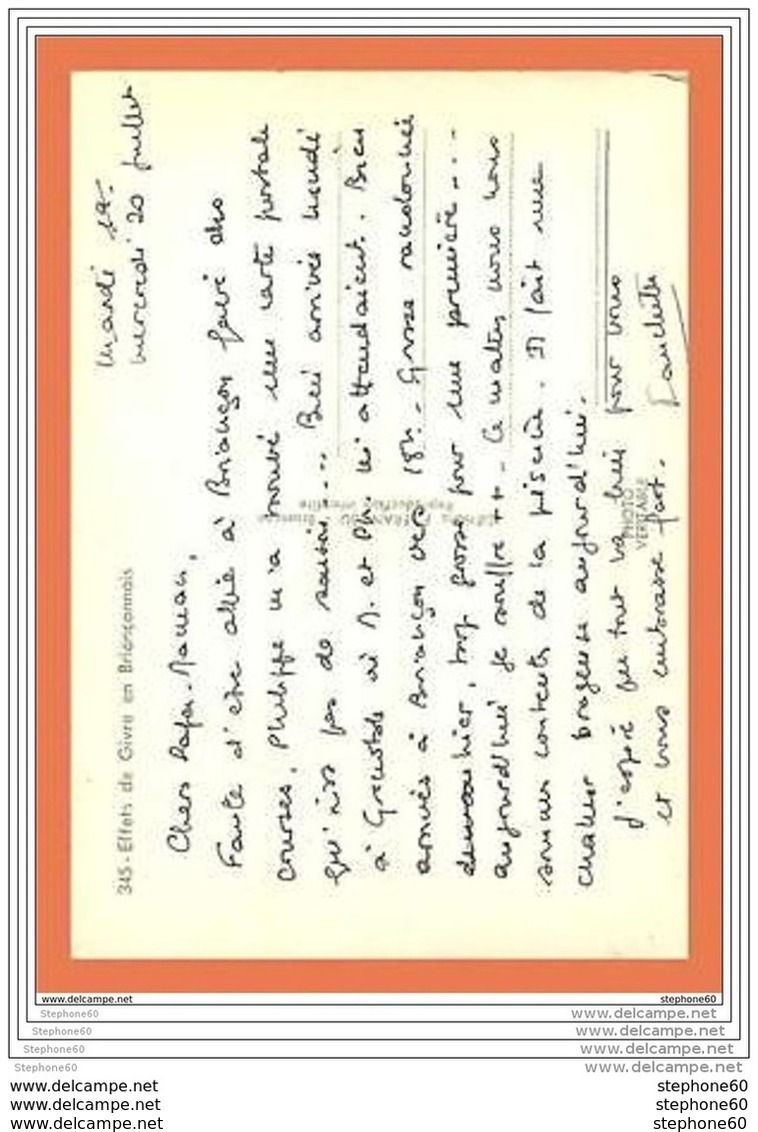 345 - Effets de Givre en Briançonnais
Mardi 19 -
Mercredi 20 Juillet
Chers Papa - Maman,
Faute d'être allée à Briançon faire des
courses, Philippe m'a trouvé une carte postale
qui n'est pas de saison.... Bien arrivés lundi
à Grenoble où M. et Ph. ns attendaient. Bien
arrivés à Briançon vers 18h. - Grosse randonnée
hier, trop grosse pour une première....
aujourd'hui je souffre ++ - Ce matin nous nous
sommes contentés de la piscine. Il fait une
chaleur orageuse aujourd'hui.
J'espère que tout va bien pour vous
et vous embrasse fort.
Editions FRANCOU Briançon
Reproduction interdite
PHOTO
VERITABLE
www.delcampe.net stephone60
Stephone60 www.delcampe.net
Stephone60 www.delcampe.net
Stephone60 www.delcampe.net
Stephone60 www.delcampe.net
www.delcampe.net stephone60
www.delcampe.net stephone60
www.delcampe.net stephone60